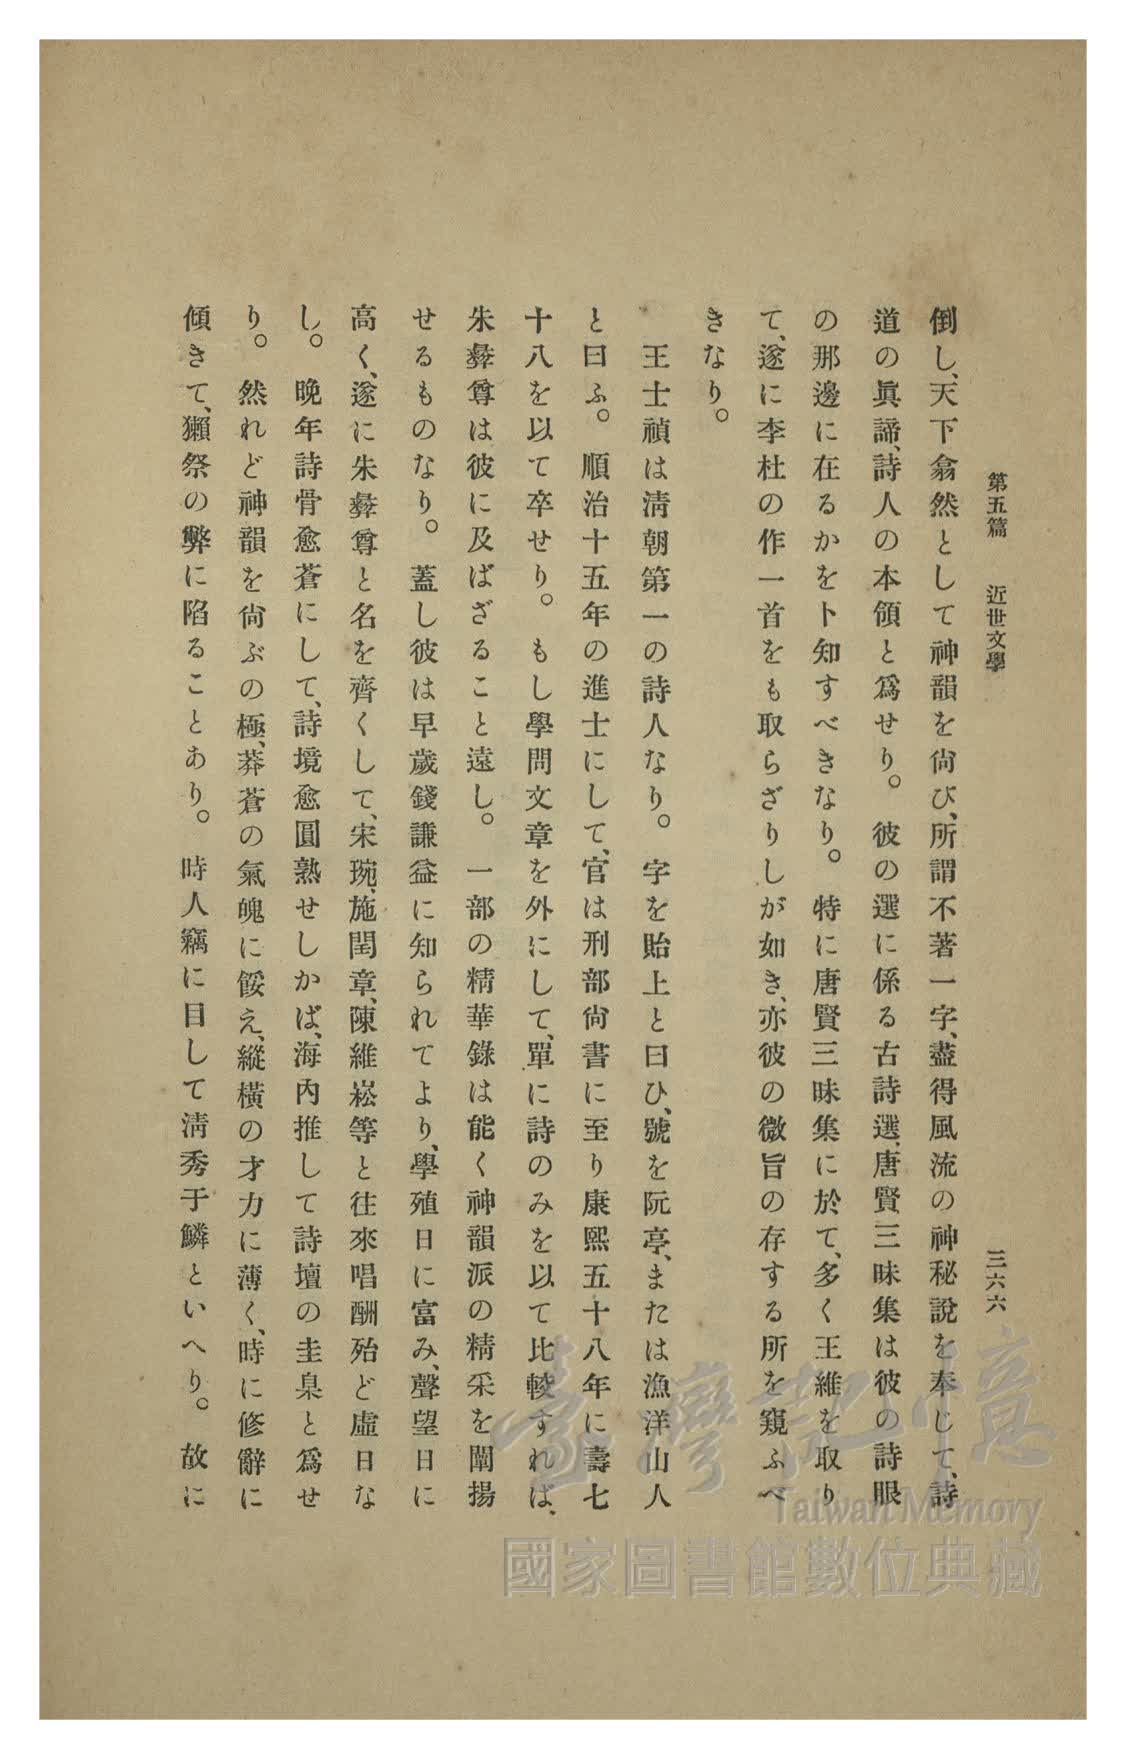 第五篇　近世文學　三六六
倒し、天下翕然として神韻を尙び、所謂不著一字、盡得風流の神秘說を奉じて、詩
道の眞諦、詩人の本領と爲せり。彼の選に係る古詩選、唐賢三昧集は彼の詩眼
の那邊に在るかを卜知すべきなり。特に唐賢三昧集に於て、多く王維を取り
て、遂に李杜の作一首をも取らざりしが如き、亦彼の微旨の存する所を窺ふべ
きなり。
王士禎は淸朝第一の詩人なり。字を貽上と曰ひ、號を阮亭、または漁洋山人
と曰ふ。順治十五年の進士にして、官は刑部尙書に至り康熙五十八年に壽七
十八を以て卒せり。もし學問文章を外にして、單に詩のみを以て比較すれば、
朱彝尊は彼に及ばざること遠し。一部の精華錄は能く神韻派の精采を闡揚
せるものなり。蓋し彼は早歲錢謙益に知られてより、學殖日に富み、聲望日に
高く、遂に朱彝尊と名を齊くして、宋琬、施閏章、陳維崧等と往來唱酬殆ど虛日な
し。晩年詩骨愈蒼にして、詩境愈圓熟せしかば、海內推して詩壇の圭臬と爲せ
り。然れど神韻を尙ぶの極、莽蒼の氣魄に餒え、縱橫の才力に薄く、時に修辭に
傾きて、獺祭の弊に陷ることあり。時人竊に目して淸秀于鱗といへり。故に
臺灣記憶
Taiwan Memory
國家圖書館數位典藏